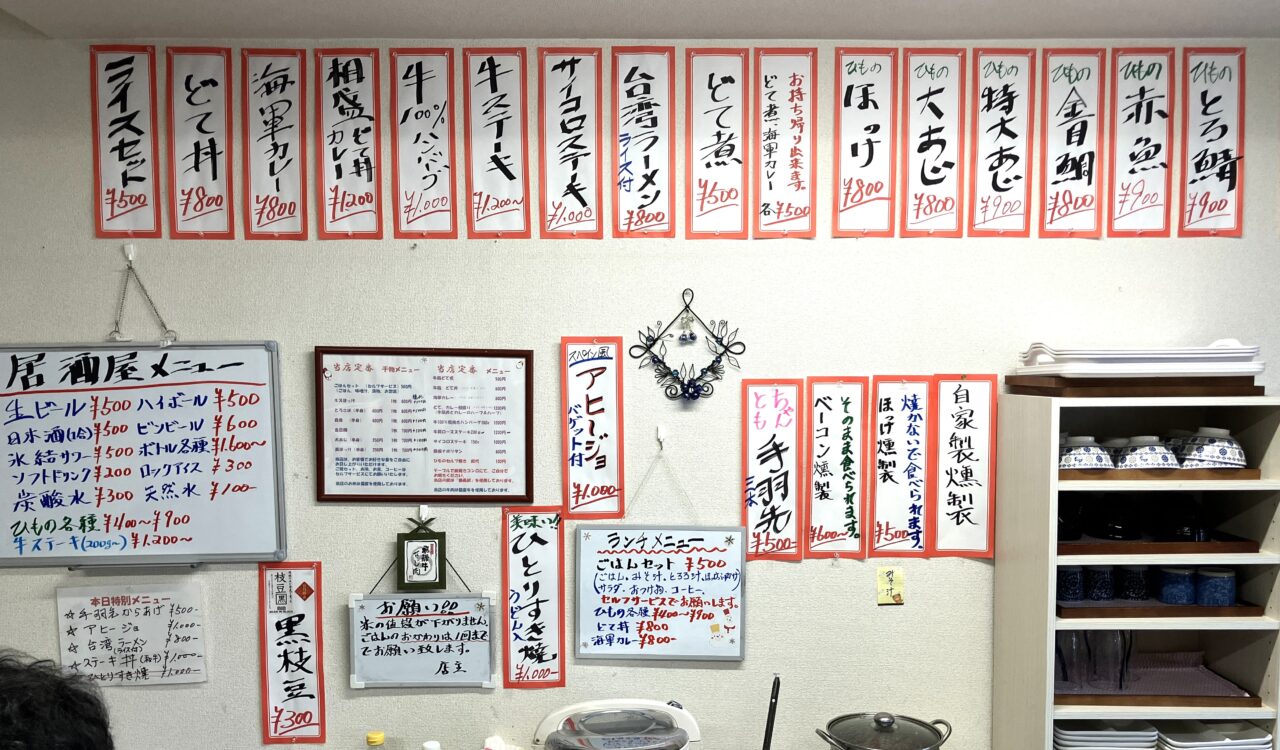 ライスセット
¥500
どて丼
¥800
海軍カレー
¥800
相盛どて丼
カレー
¥1,200
牛100%ハンバーグ
¥1,000
牛ステーキ
¥1,200~
サイコロステーキ
¥1,000
台湾ラーメン
ライス付
¥800
どて煮
¥500
お持ち帰り出来ます。
どて煮、海軍カレー
各¥500
ひもの
ほっけ
¥800
ひもの
大あじ
¥800
ひもの
特大あじ
¥900
ひもの
金目鯛
¥800
ひもの
赤魚
¥900
ひもの
とろ鯖
¥900
居酒屋メニュー
生ビール ¥500 ハイボール ¥500
日本酒(1合) ¥500 ビンビール ¥600
氷結サワー ¥500 ボトル各種 ¥1,600~
ソフトドリンク ¥200 ロックアイス ¥300
炭酸水 ¥300 天然水 ¥100-
ひもの各種 ¥400~¥900
牛ステーキ(200g~) ¥1,200~
当店定番 干物メニュー
当店定番 メニュー
スペイン風
アヒージョ
バゲット付
¥1,000-
ちゃんとも
手羽先
三本
¥500-
そのまま食べられます。
ベーコン燻製
¥600~
焼かないで食べられます。
ほっけ燻製
¥500
自家製燻製
本日特別メニュー
☆手羽先からあげ ¥500-
☆アヒージョ ¥1,000-
☆台湾ラーメン ¥800-
(ライス付)
☆ステーキ丼 ¥1,000-
☆ひとりすき焼 ¥1,000-
枝豆
黒枝豆
¥300
お願い!!
米の値段が下がりません。
ごはんのおかわりは1回まで
でお願い致します。
店主
美味い!!
ひとりすき焼
うどん入
¥1,000-
ランチメニュー
ごはんセット ¥500
サラダ、おつけ物、コーヒー、
セルフサービスでお願いします。
ひもの各種 ¥400~¥900
どて丼 ¥800
海軍カレー ¥800-
みそ汁